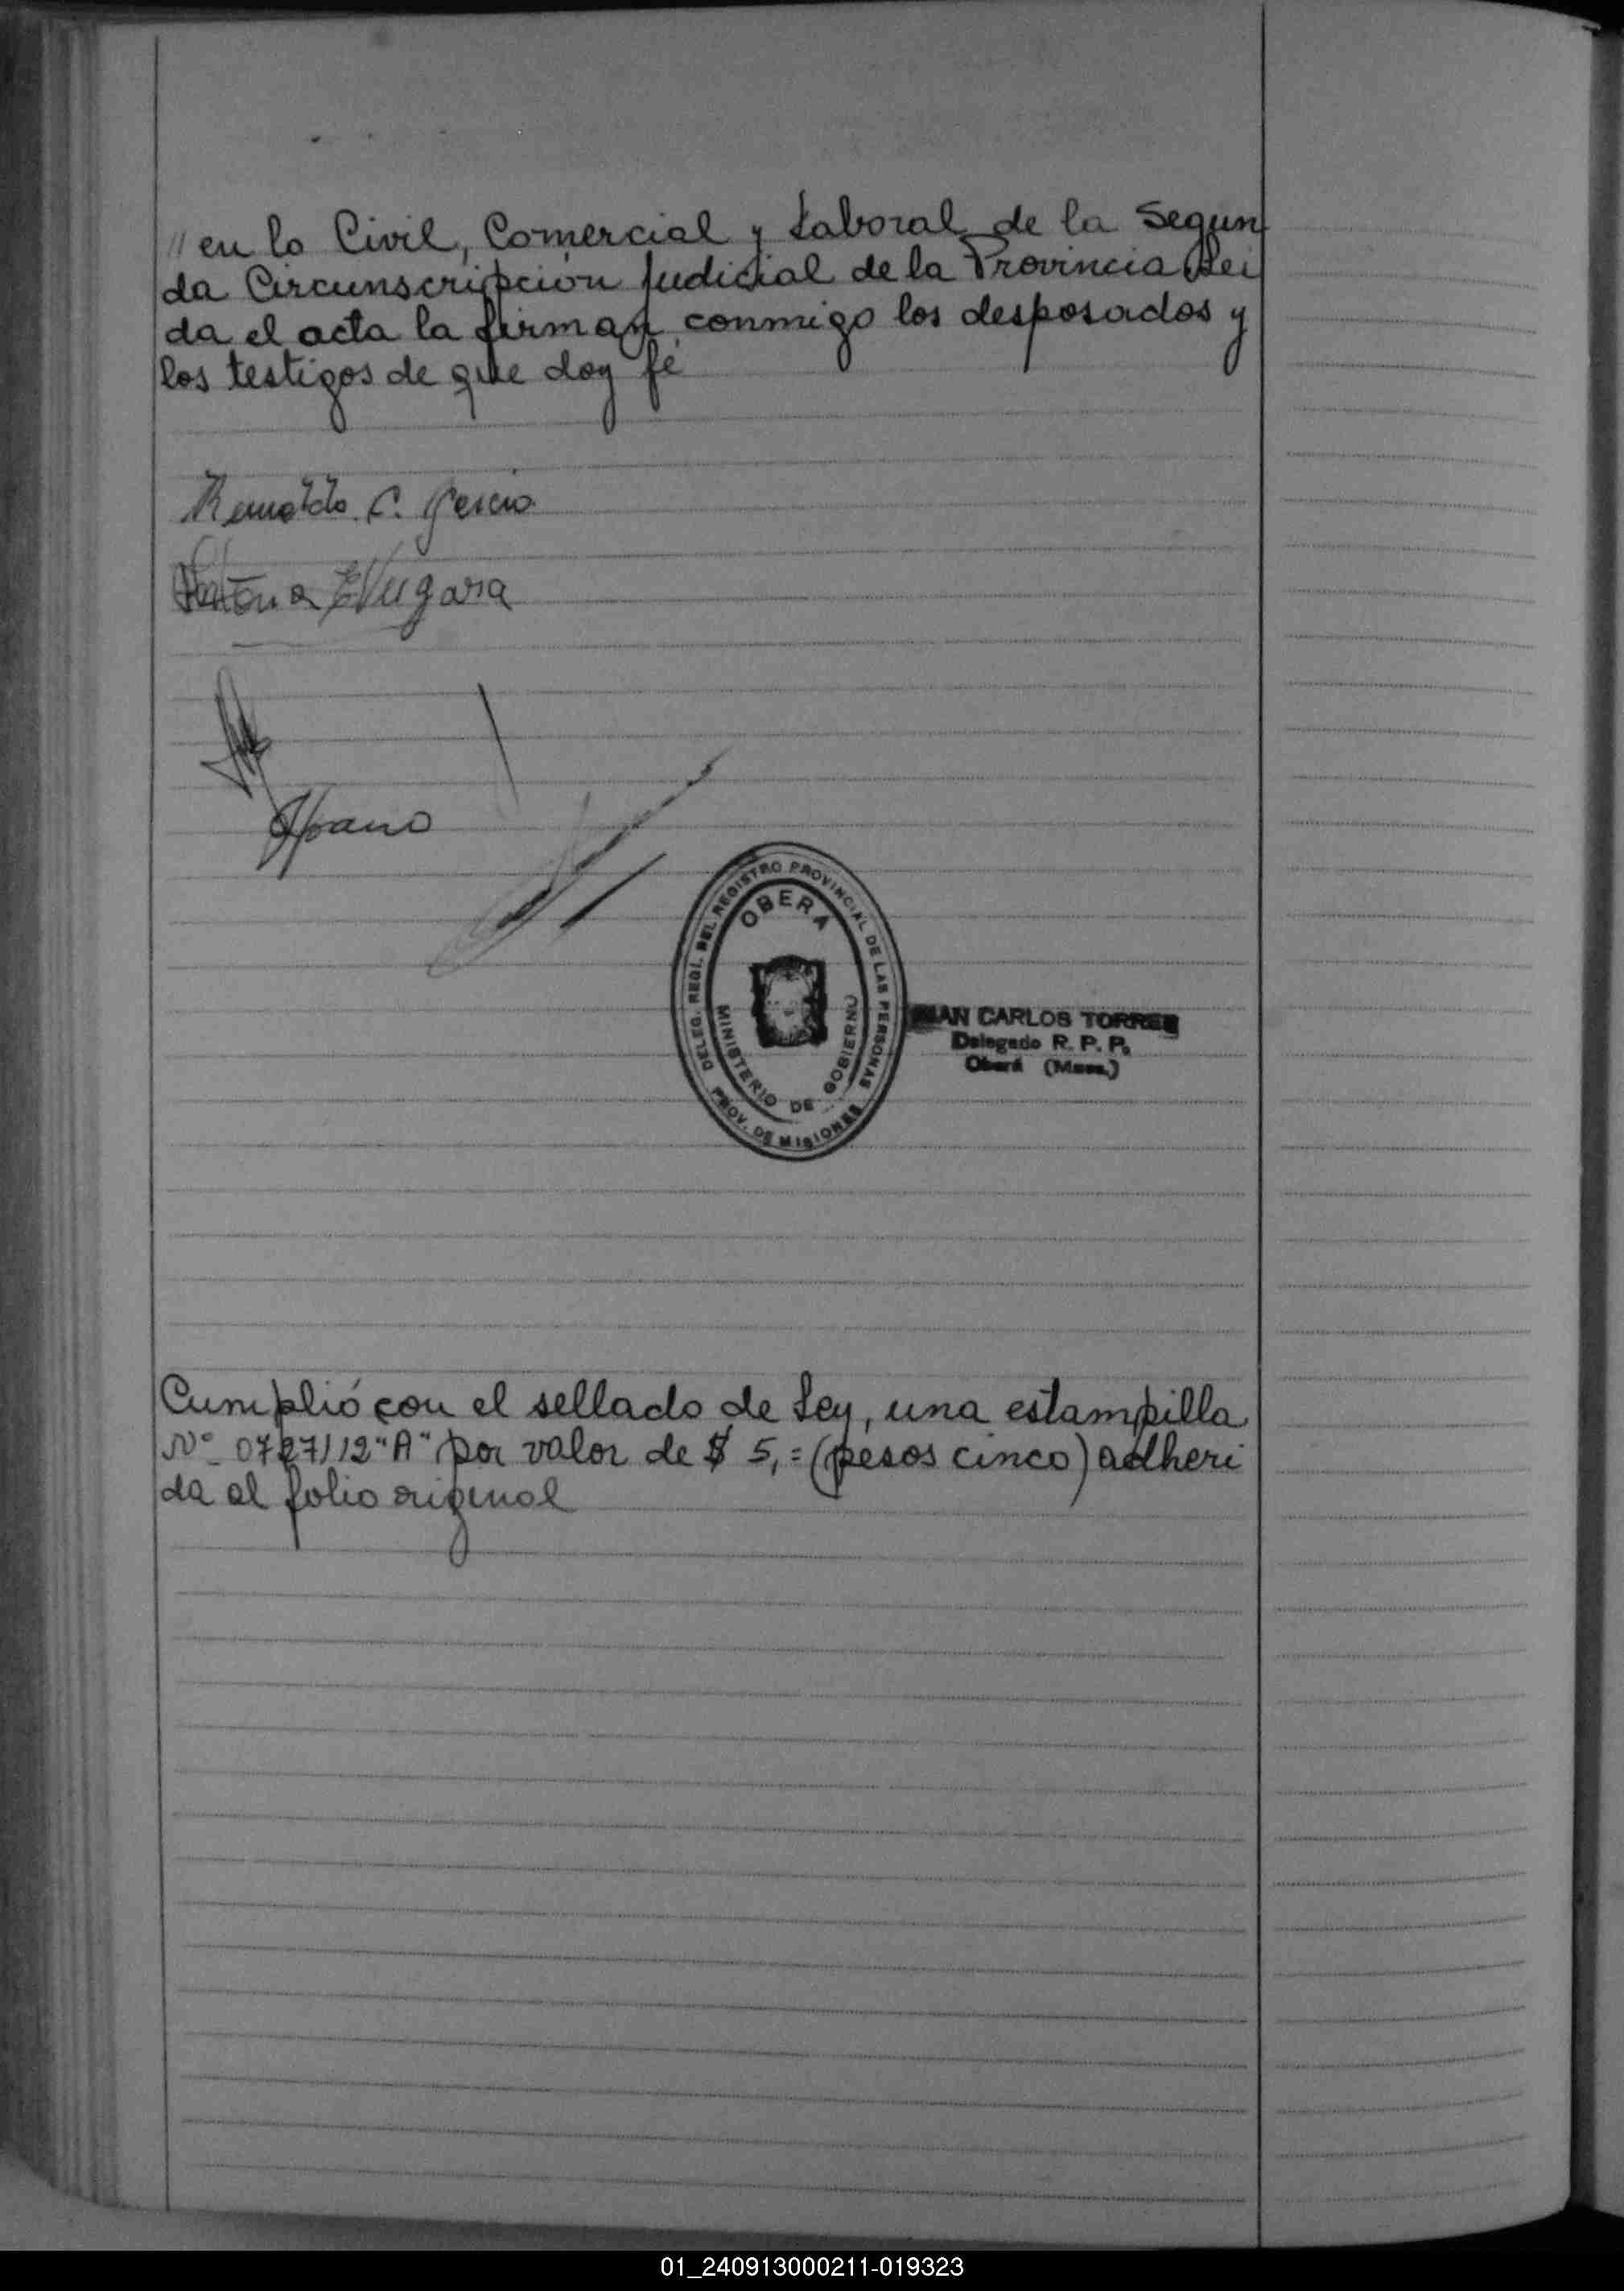 // en lo Civil, Comercial y Laboral de la Segun
da Circunscripción Judicial de la Provincia Lei
da el acta la firman conmigo los desposados y
los testigos de que doy fé
C.
OBERA
DELEG. REGL. DEL REGISTRO PROVINCIAL DE LAS PERSONAS
MINISTERIO DE GOBIERNO
PROV. DE MISIONES
JUAN CARLOS TORRES
Delegado R. P. P.
Oberá (Mnes.)
Cumplió con el sellado de Ley, una estampilla
Nº 0727112 "A" por valor de $ 5,= (pesos cinco) adheri
da al folio original
01_240913000211-019323